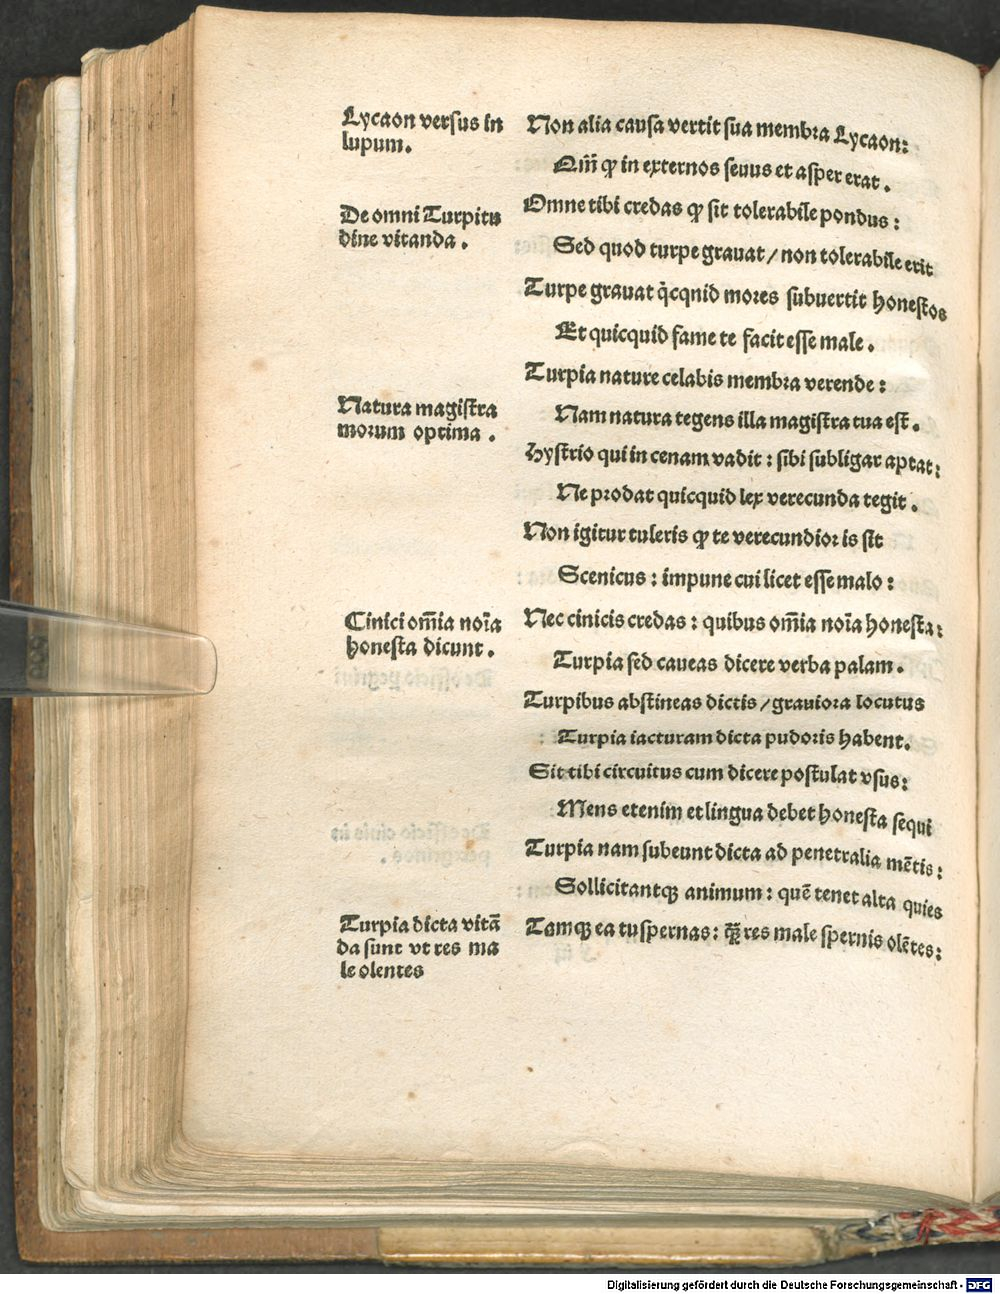 Lycaon versus in
lupum.
Non alia causa vertit sua membra Lycaon:
Qm̄ ꝙ in externos seuus et asper erat.
De omni Turpitu
dine vitanda.
Omne tibi credas ꝙ sit tolerabile pondus:
Sed quod turpe grauat / non tolerabile erit
Turpe grauat q̇cqnid mores subuertit honestos
Et quicquid fame te facit esse male.
Turpia nature celabis membra verende:
Natura magistra
morum optima.
Nam natura tegens illa magistra tua est.
Hystrio qui in cenam vadit: sibi subligar aptat:
Ne prodat quicquid lex verecunda tegit.
Non igitur tuleris ꝙ te verecundior is sit
Scenicus: impune cui licet esse malo:
Cinici om̄ia noīa
honesta dicunt.
Nec cinicis credas: quibus om̄ia noīa honesta:
Turpia sed caueas dicere verba palam.
Turpibus abstineas dictis / grauiora locutus
Turpia iacturam dicta pudoris habent.
Sit tibi circuitus cum dicere postulat vsus:
Mens etenim et lingua debet honesta sequi
Turpia nam subeunt dicta ad penetralia mētis:
Sollicitantqꝫ animum: quē tenet alta quies
Turpia dicta vitā
da sunt vt res ma
le olentes
Tamqꝫ ea tu spernas: q̄ꝫ res male spernis olētes:
Digitalisierung gefördert durch die Deutsche Forschungsgemeinschaft - DFG